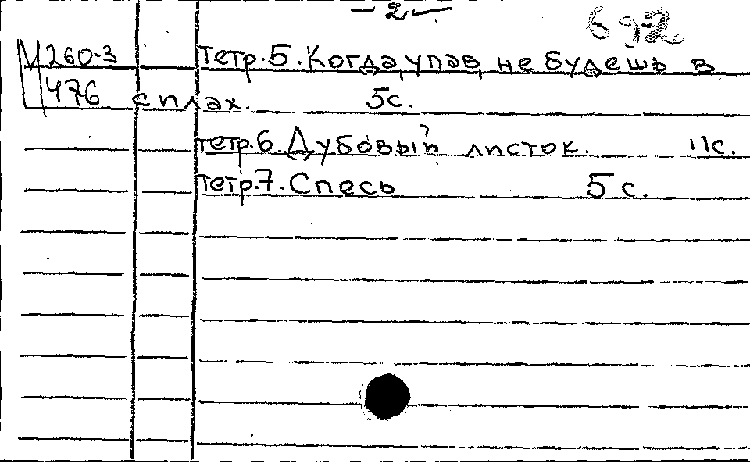 - 2 -
692
М260-3 Тетр.5. Когда, упав, не будешь в
476 силах. 5с.
тетр.6. Дубовый листок. 11с.
тетр.7. Спесь 5с.